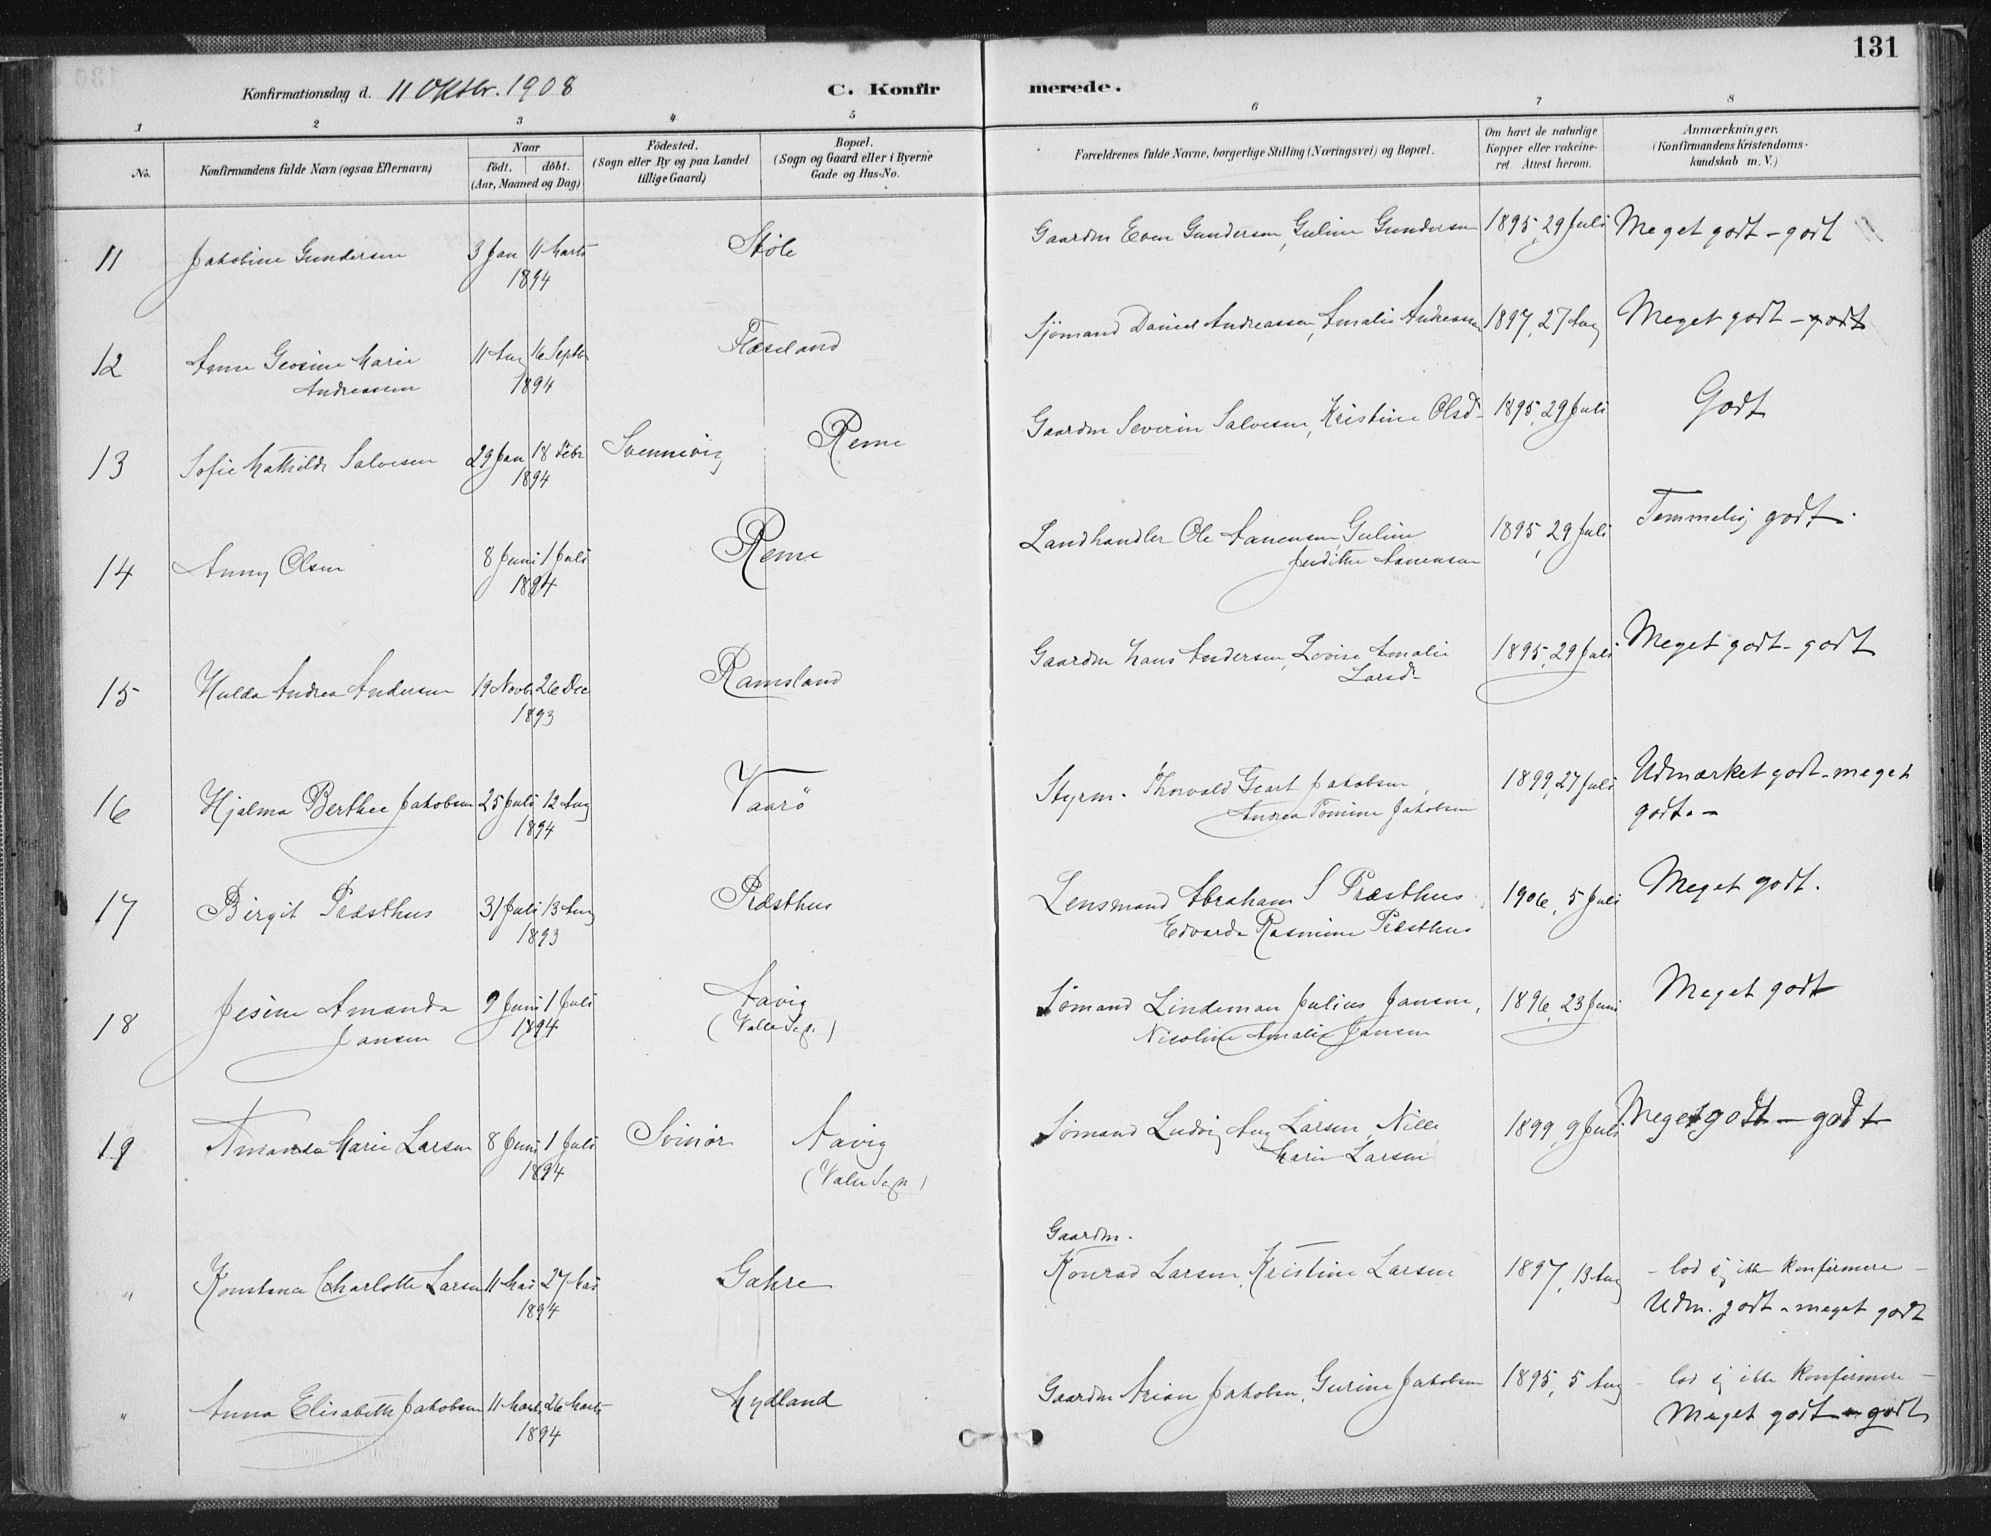 131
Konfirmationsdag d. 11 Oktbr. 1908 C. Konfirmerede.
1 2 3 4 5 6 7 8
No.
Konfirmandens fulde Navn (ogsaa Efternavn)
Naar
födt. döbt.
(Aar, Maaned og Dag)
Födested.
(Sogn eller By og paa Landet
tillige Gaard)
Bopæl.
(Sogn og Gaard eller i Byerne
Gade og Hus-No.
Forældrenes fulde Navne, borgerlige Stilling (Næringsvei) og Bopæl.
Om havt de naturlige
Kopper eller vakcine-
ret Attest herom.
Anmærkninger.
(Konfirmandens Kristendoms-
kundskab m. V.)
11 Jakobine Gundersen 3 Jan 11 Marts Støle Gaardm Even Gundersen, Guline Gundersen 1895, 29 Juli Meget godt - godt
1894
12 Anne Georine Marie 11 Aug 16 Septbr Flæseland Sjömand Daniel Andreassen, Amalie Andreassen 1897, 27 Aug Meget godt - godt
Andreassen 1894
13 Sofie Mathilde Salvesen 29 Jan 18 Febr Svennevig Reme Gaardm Severin Salvesen, Kristine Olsd 1895, 29 Juli Godt
1894
14 Anny Olsen 8 Juni 1 Juli Reme Landhandler Ole Aanensen, Guline 1895, 29 Juli Temmelig godt.
1894 Judithe Aanensen
15 Hulda Andrea Andersen 19 Novbr 26 Dec Ramsland Gaardm Hans Andersen, Lovise Amalie 1895, 29 Juli Meget godt - godt
1893 Larsd
16 Hjalma Berthee Jakobsen 25 Juli 12 Aug Vaarö Styrm. Thorvald Geart Jakobsen, 1899, 27 Juli Udmærket godt - meget
1894 Andrea Tomine Jakobsen godt. -
17 Birgit Præsthus 31 Juli 13 Aug Præsthus Lensmand Abraham S Præsthus, 1906, 5 Juli Meget godt.
1893 Edvarda Rasmine Præsthus
18 Jesine Amanda 9 Juni 1 Juli Aavig Sømand Lindeman Julius Jansen, 1896, 23 Juni Meget godt
Jansen 1894 (Valle Sogn) Nicoline Amalie Jansen
19 Amanda Marie Larsen 8 Juni 1 Juli Svinør Aavig Sømand Ludvig Aug Larsen, Nille 1899, 9 Juli Meget godt - godt
1894 (Valle Sogn) Marie Larsen
Gaardm.
" Konstanse Charlotte Larsen 11 Mai 27 Mai Gahre Konrad Larsen, Kristine Larsen 1897, 13 Aug - lod sig ikke konfirmere -
1894 Udm. godt - meget godt
" Anna Elisabeth Jakobsen 11 Marts 26 Marts Hydland Gaardm Arian Jakobsen, Gurine Jakobsen 1895, 5 Aug - lod sig ikke konfirmere -
1894 Meget godt - godt